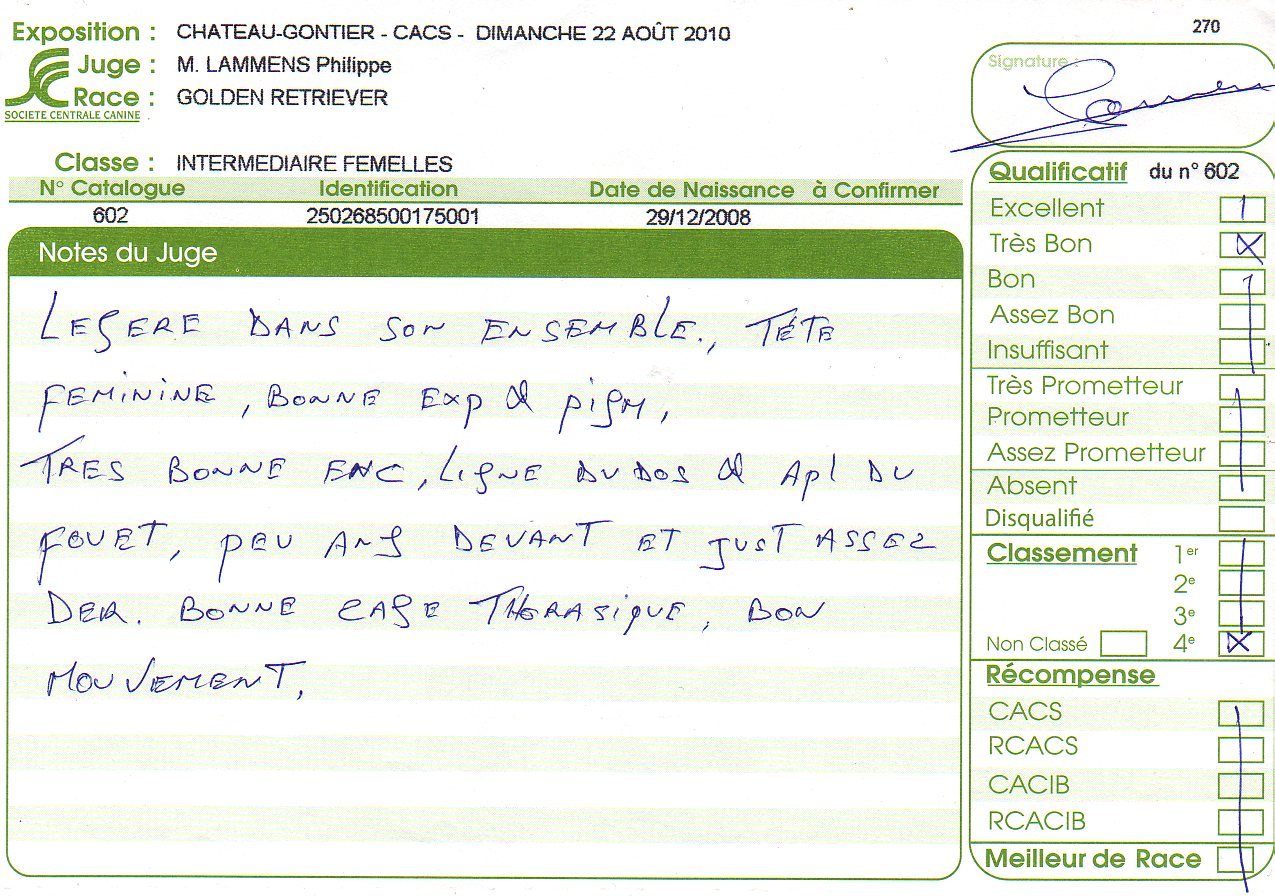 270
Exposition : CHATEAU-GONTIER - CACS - DIMANCHE 22 AOÛT 2010
Juge : M. LAMMENS Philippe
Race : GOLDEN RETRIEVER
SOCIETE CENTRALE CANINE
Classe : INTERMEDIAIRE FEMELLES
N° Catalogue Identification Date de Naissance à Confirmer
602 250268500175001 29/12/2008
Notes du Juge
LEGERE DANS SON ENSEMBLE., TÉTE
FEMININE, BONNE EXP & PIGM,
TRES BONNE ENC, LIGNE DU DOS & APL DU
FOUET, PEU ANG DEVANT ET JUST ASSEZ
DER. BONNE CAGE THORASIQUE, BON
MOUVEMENT.
Signature :
Qualificatif du n° 602
Excellent
Très Bon X
Bon
Assez Bon
Insuffisant
Très Prometteur
Prometteur
Assez Prometteur
Absent
Disqualifié
Classement 1er
2e
3e
Non Classé 4e X
Récompense
CACS
RCACS
CACIB
RCACIB
Meilleur de Race